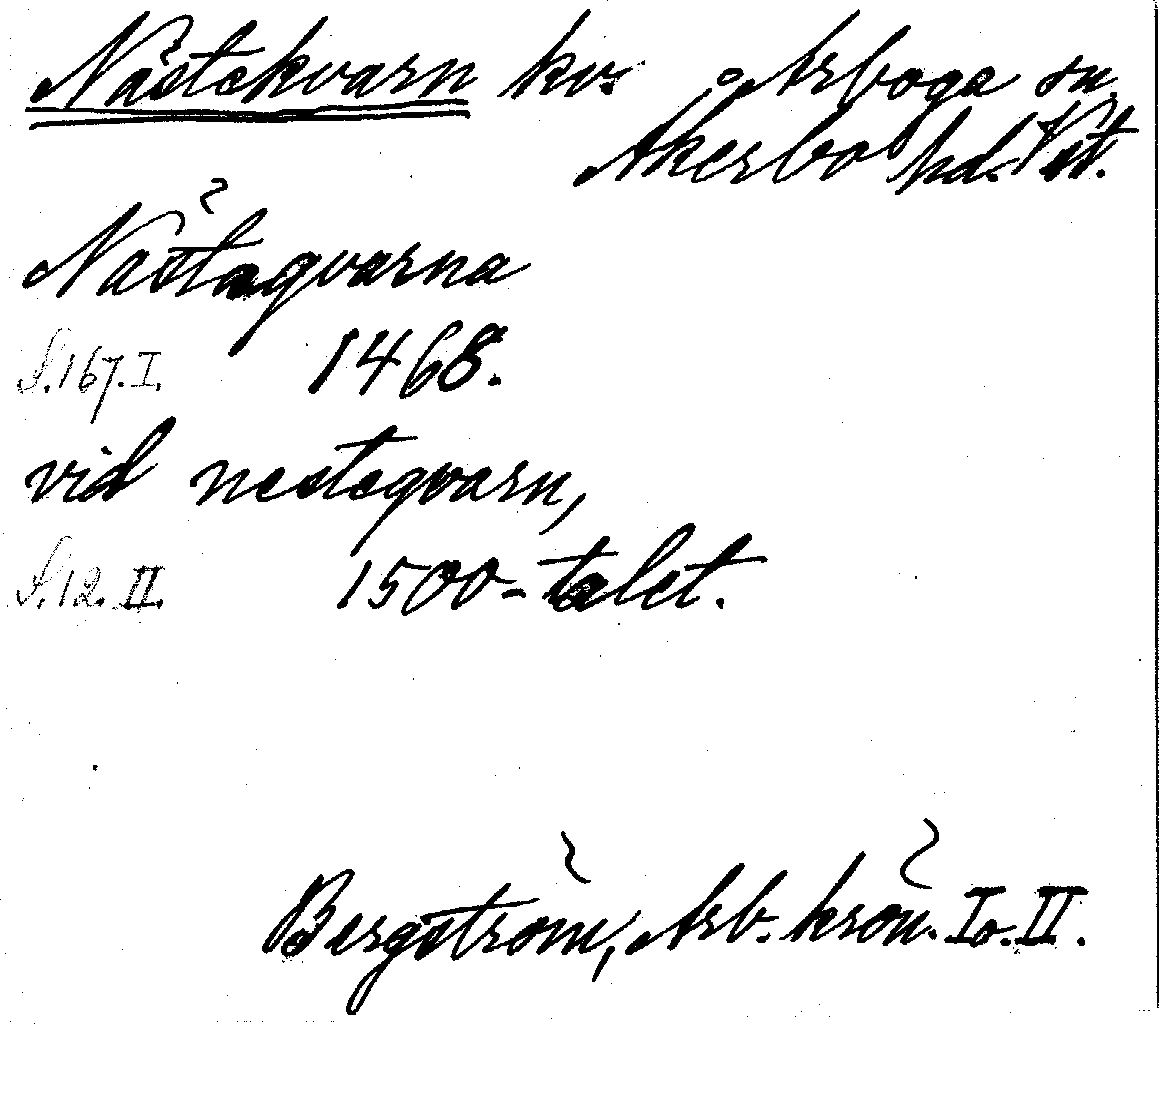 Nästekvarn kv. Arboga sn.
Åkerbo hd. Vst.
Nästaqvarna
S. 167. I. 1468.
vid nesteqvarn,
S. 12. II. 1500-talet.
Bergström, Arb. krön. I o. II.